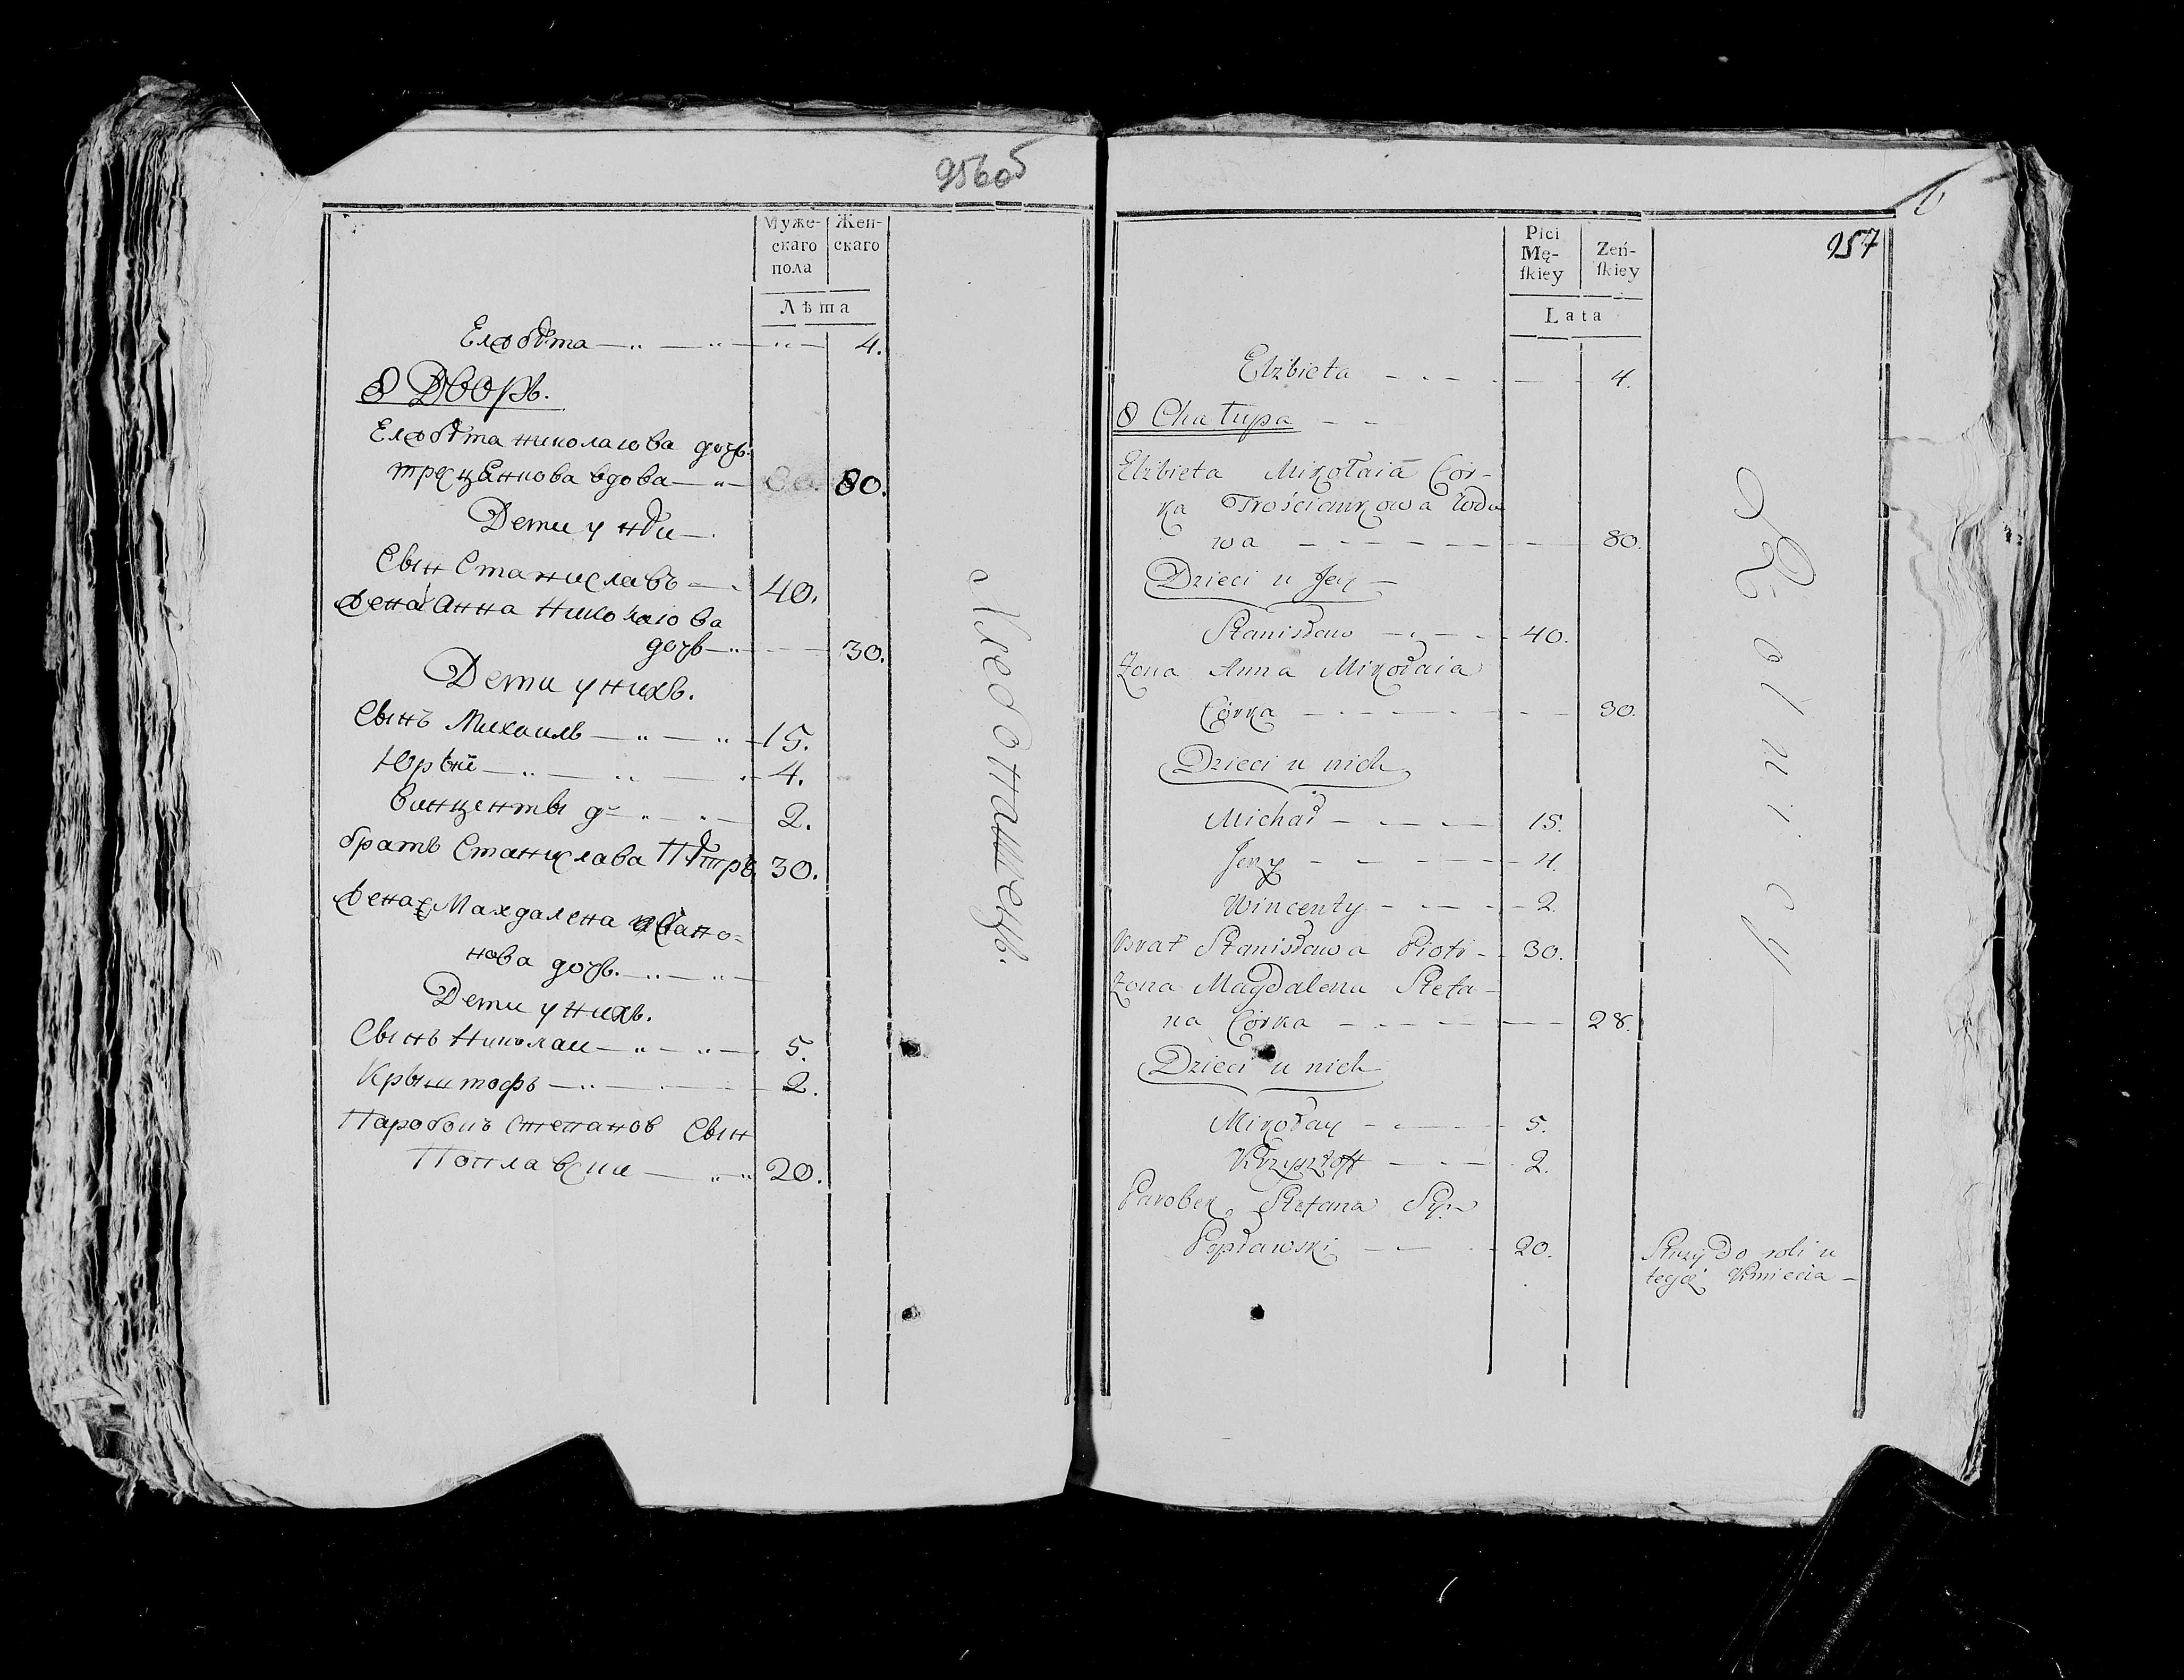 956об
Муже-
скаго
пола
Жен-
скаго
Лѣта
Елзбѣта 4.
8 Дворъ.
Елзбѣта николаюва дочь
вдова 80. 80.
Дети у нѣи
Сын Станиславъ 40.
жена Анна Николаюва
дочь 30.
Дети у нихъ.
Сынъ Михаилъ 15.
Юрьй 4.
Винценты 2.
братъ Станислава Пѣтръ 30.
жена Магдалена
нова дочь.
Дети у нихъ.
Сынъ Николаи 5.
Крыштофъ 2.
Паробокъ Степанов Сын
Поплавски 20.
Хлебопашецъ.
6
957
Płci
Mę-
ſkiey
Zeń-
ſkiey
Lata
Elzbieta 4.
8 Chałupa
Elzbieta Mikołaia Cór-
ka Trościankowa Wdo
wa 80.
Dzieci u Jey
Stanisław 40.
Zona Anna Mikołaia
Córka 30.
Dzieci u nich
Michał 15.
Jerzy 4.
Wincenty 2.
Brat Stanisława Piotr 30.
Zona Magdalena Stefa-
na Córka 28.
Dzieci u nich
Mikołay 5.
Krzysztoff 2.
Parobek Stefana Syn
Popławski 20.
Służy Do roli u
tegoż Kmiecia
Rolnicy